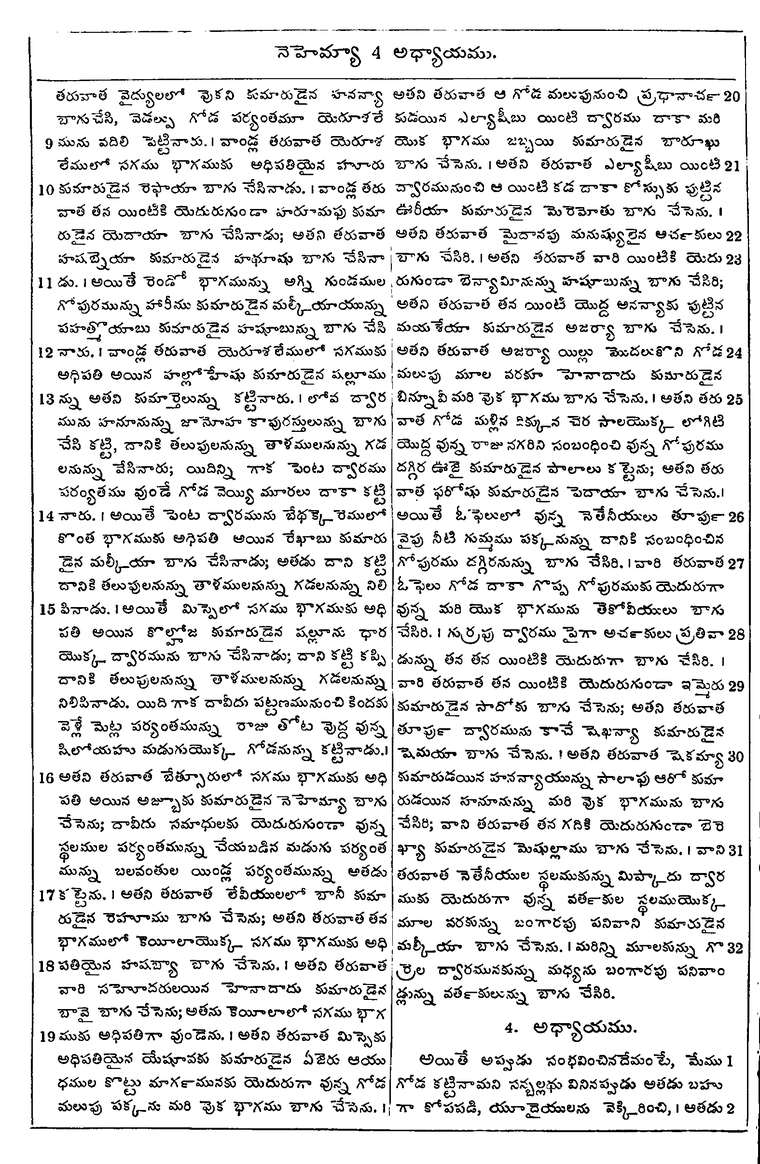 నెహెమ్యా 4 అధ్యాయము.
తరువాత వైద్యులలో వుకని కుమారుడైన హనన్యా
బాగుచేసి, వెడల్పు గోడ పర్యంతమూ యెరూశలే
9 మును వదిలి పెట్టినారు. । వాండ్ల తరువాత యెరూశ
లేములో సగము భాగముకు అధిపతియైన హూరు
10 కుమారుడైన రెఫాయా బాగు చేసినాడు. । వాండ్ల తరు
వాత తన యింటికి యెదురుగుండా హరూమపు కుమా
రుడైన యెదాయా బాగు చేసినాడు; అతని తరువాత
హషబ్నెయా కుమారుడైన హథూషు బాగు చేసినా
11 డు. । అయితే రెండో భాగమున్ను అగ్ని గుండముల
గోపురమున్ను హారీము కుమారుడైన మల్కీయాయున్ను
పహత్మొయాబు కుమారుడైన హషూబున్ను బాగు చేసి
12 నారు. । వాండ్ల తరువాత యెరూశలేములో సగముకు
అధిపతి అయిన హల్లోహేషు కుమారుడైన షల్లూము
13 న్ను అతని కుమార్తెలున్ను కట్టినారు. । లోవ ద్వార
మును హనూనున్ను జానోహ కాపురస్తులున్ను బాగు
చేసి కట్టి, దానికి తలుపులనున్ను తాళములనున్ను గడ
లనున్ను చేసినారు; యిదిన్ని గాక పెంట ద్వారము
పర్యంతము వుండే గోడ వెయ్యి మూరలు దాకా కట్టి
14 నారు. । అయితే పెంట ద్వారమును బేథక్కెరెములో
కొంత భాగముకు అధిపతి అయిన రేఖాబు కుమారు
డైన మల్కీయా బాగు చేసినాడు; అతడు దాని కట్టి
దానికి తలుపులనున్ను తాళములనున్ను గడలనున్ను నిలి
15 పినాడు. । అయితే మిస్పెలో సగము భాగముకు అధి
పతి అయిన కొల్హోజ కుమారుడైన షల్లూను ధార
యొక్క ద్వారమును బాగు చేసినాడు; దాని కట్టి కప్పి
దానికి తలుపులనున్ను తాళములనున్ను గడలనున్ను
నిలిపినాడు. యిది గాక దావీదు పట్టణమునుంచి కిందకు
వెళ్లే మెట్ల పర్యంతమున్ను రాజు తోట వుద్ద వున్న
షిలోయహు మడుగుయొక్క గోడనున్ను కట్టినాడు. ।
16 అతని తరువాత బేత్సూరులో సగము భాగముకు అధి
పతి అయిన అజ్బూకు కుమారుడైన నెహెమ్యా బాగు
చేసెను; దావీదు సమాధులకు యెదురుగుండా వున్న
స్థలముల పర్యంతమున్ను చేయబడిన మడుగు పర్యంత
మున్ను బలవంతుల యిండ్ల పర్యంతమున్ను అతడు
17 కట్టెను. । అతని తరువాత లేవీయులలో బానీ కుమా
రుడైన రెహూము బాగు చేసెను; అతని తరువాత తన
భాగములో కెయీలాయొక్క సగము భాగముకు అధి
18 పతియైన హషబ్యా బాగు చేసెను. । అతని తరువాత
వారి సహోదరులయిన హేనాదాదు కుమారుడైన
బావై బాగు చేసెను; అతను కెయీలాలో సగము భాగ
19 ముకు అధిపతిగా వుండెను. । అతని తరువాత మిస్పెకు
అధిపతియైన యేషూవకు కుమారుడైన ఏజెరు ఆయు
ధముల కొట్టు మార్గమునకు యెదురుగా వున్న గోడ
మలుపు పక్కను మరి వుక భాగము బాగు చేసెను. ।
అతని తరువాత ఆ గోడ మలుపునుంచి ప్రధానాచర్‌ 20
కుడయిన ఎల్యాషీబు యింటి ద్వారము దాకా మరి
యొక భాగము జబ్బయి కుమారుడైన బారూఖు
బాగు చేసెను. । అతని తరువాత ఎల్యాషీబు యింటి 21
ద్వారమునుంచి ఆ యింటి కడ దాకా కోస్సుకు పుట్టిన
ఊరీయా కుమారుడైన మెరెమోతు బాగు చేసెను. ।
అతని తరువాత మైదానపు మనుష్యులైన ఆర్చకులు 22
బాగు చేసిరి. । అతని తరువాత వారి యింటికి యెదు 23
రుగుండా బెన్యామీనున్ను హషూబున్ను బాగు చేసిరి;
అతని తరువాత తన యింటి యొద్ద అనన్యాకు పుట్టిన
మయశేయా కుమారుడైన అజర్యా బాగు చేసెను. ।
అతని తరువాత అజర్యా యిల్లు మొదలుకొని గోడ 24
మలుపు మూల వరకూ హెనాదాదు కుమారుడైన
బిన్నూవీ మరి వుక భాగము బాగు చేసెను. । అతని తరు 25
వాత గోడ మళ్లిన దిక్కున చెర సాలయొక్క లోగిటి
యొద్ద వున్న రాజు నగరిని సంబంధించి వున్న గోపురము
దగ్గిర ఊజై కుమారుడైన పాలాలు కట్టెను; అతని తరు
వాత ఫరోషు కుమారుడైన పెదాయా బాగు చేసెను. ।
అయితే ఓఫెలులో వున్న నెతేనీయులు తూర్పు 26
వైపు నీటి గుమ్మము పక్కనున్ను దానికి సంబంధించిన
గోపురము దగ్గిరనున్ను బాగు చేసిరి. । వారి తరువాత 27
ఓఫెలు గోడ దాకా గొప్ప గోపురముకుయెదురుగా
వున్న మరి యొక భాగమును తెకోవీయులు బాగు
చేసిరి. । గుర్రపు ద్వారము పైగా ఆర్చకులు ప్రతివా 28
డున్ను తన తన యింటికి యెదురుగా బాగు చేసిరి. ।
వారి తరువాత తన యింటికి యెదురుగుండా ఇమ్మెరు 29
కుమారుడైన సాదోకు బాగు చేసెను; అతని తరువాత
తూర్పు ద్వారమును కాచే షెఖన్యా కుమారుడైన
షెమయా బాగు చేసెను. । అతని తరువాత షెకమ్యా 30
కుమారుడయిన హనన్యాయున్ను సాలాఫు ఆరో కుమా
రుడయిన హనూనున్ను మరి వుక భాగమును బాగు
చేసిరి; వాని తరువాత తన గదికి యెదురుగుండా బెరె
ఖ్యా కుమారుడైన మెషుల్లాము బాగు చేసెను. । వాని 31
తరువాత నెతేనీయుల స్థలముకున్ను మిఫ్కాదు ద్వార
ముకు యెదురుగా వున్న వర్తకుల స్థలముయొక్క
మూల వరకున్ను బంగారపు పనివాని కుమారుడైన
మల్కీయా బాగు చేసెను. । మరిన్ని మూలకున్ను గొ 32
ర్రెల ద్వారమునకున్ను మధ్యను బంగారపు పనివాం
డ్లున్ను వర్తకులున్ను బాగు చేసిరి.
4. అధ్యాయము.
అయితే అప్పుడు సంభవించినదేమంటే, మేము 1
గోడ కట్టినామని సన్బల్లథు వినినప్పుడు అతడు బహు
గా కోపపడి, యూదైయులను వెక్కిరించి, । అతడు 2